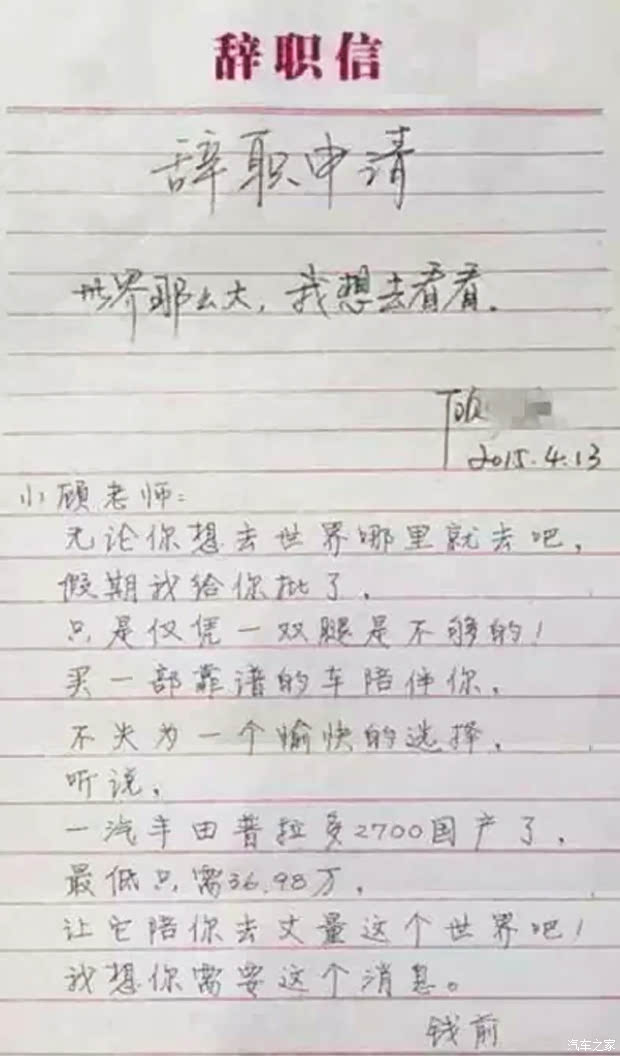 辞职信
辞职申请
世界那么大，我想去看看。
顾
2015.4.13
小顾老师：
无论你想去世界哪里就去吧，
假期我给你批了，
只是仅凭一双腿是不够的！
买一部靠谱的车陪伴你，
不失为一个愉快的选择，
听说，
一汽丰田普拉多2700国产了，
最低只需36.98万，
让它陪你去丈量这个世界吧！
我想你需要这个消息。
钱前
汽车之家